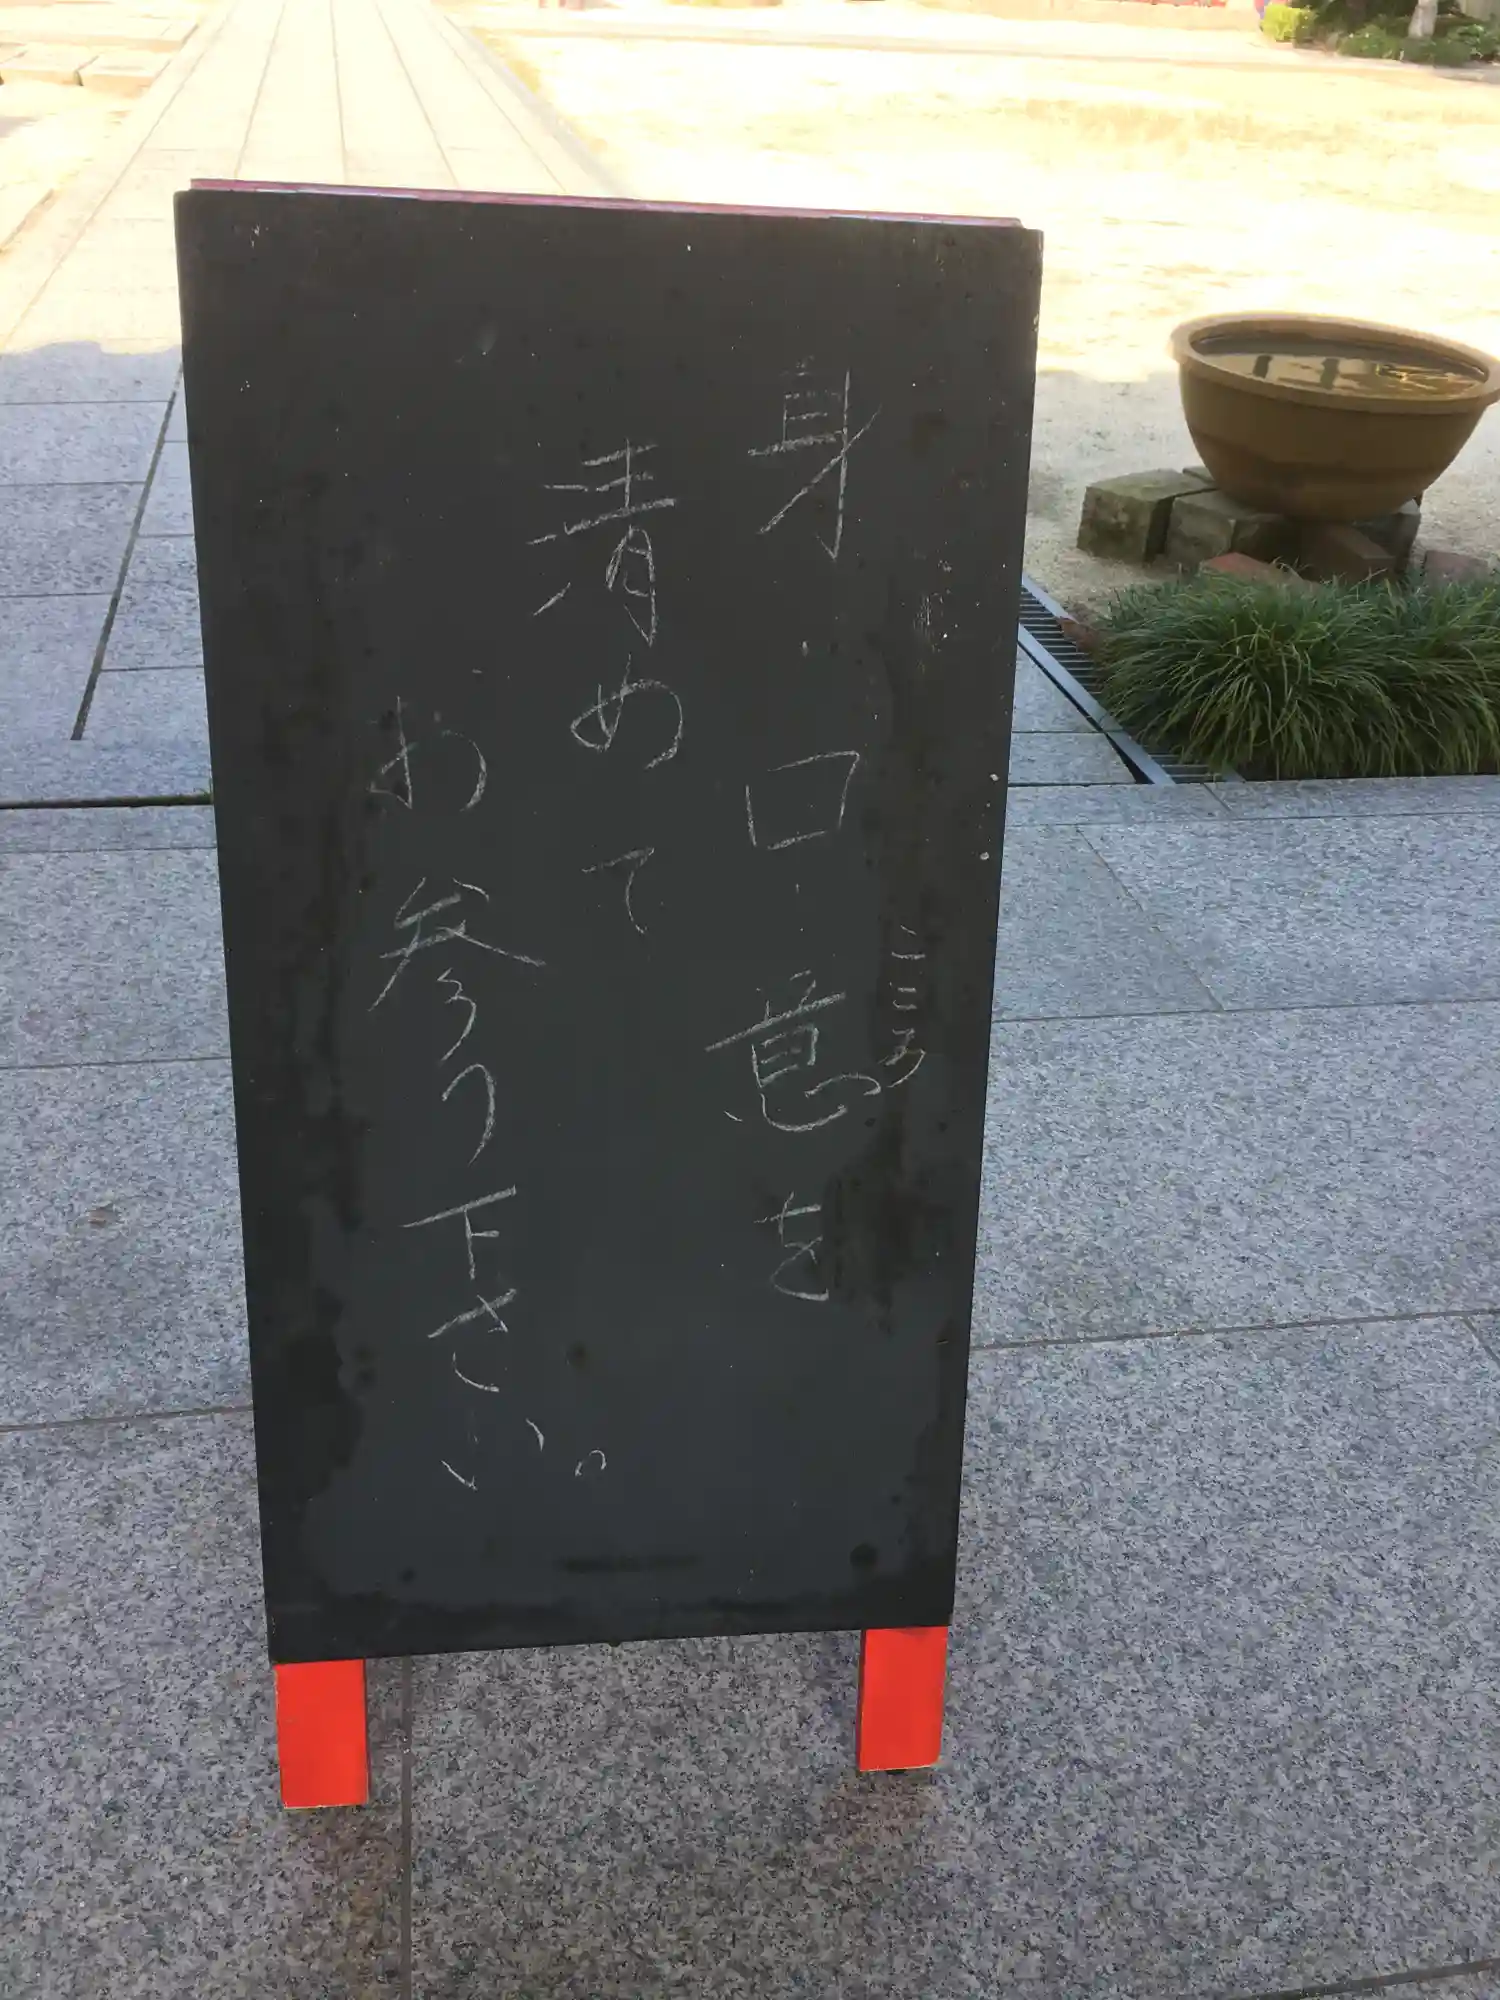 身・口・意を
こころ
清めて
お参り下さい。